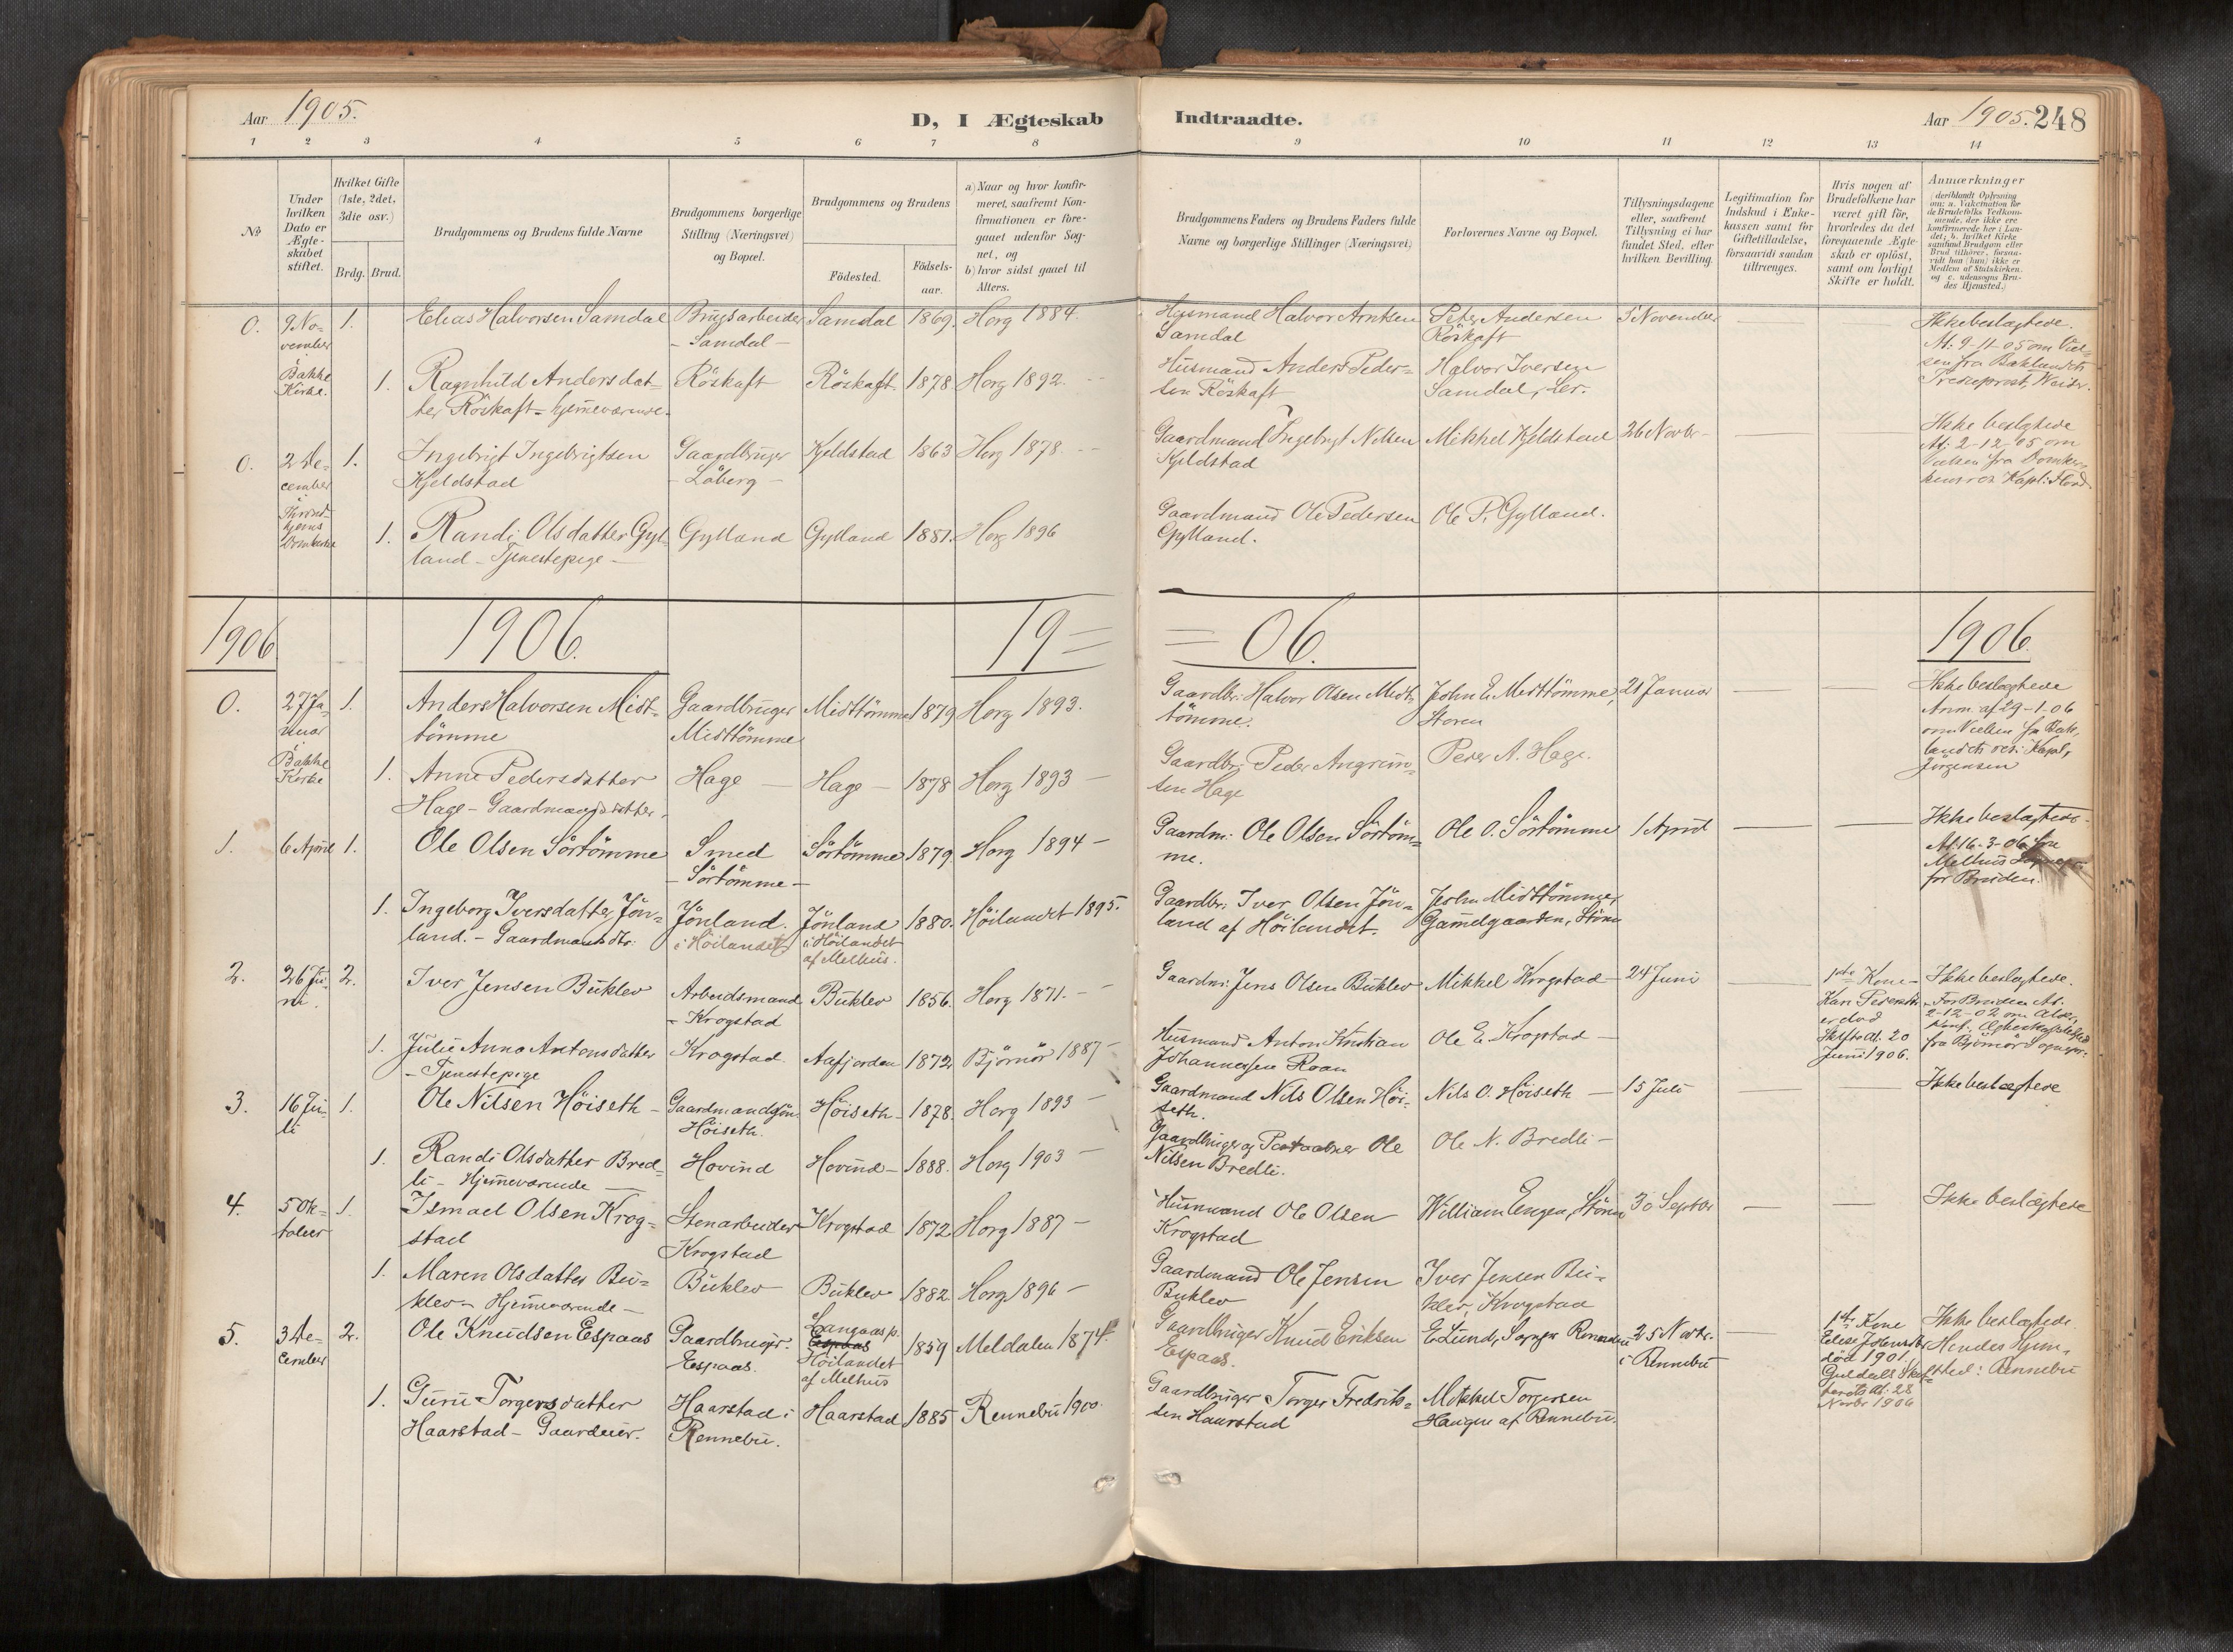 Aar 1905.
D, I Ægteskab
Indtraadte.
Aar 1905. 248
1 2 3 4 5 6 7 8 9 10 11 12 13 14
No
Under hvilken Dato er Ægte-skabet stiftet.
Hvilket Gifte (1ste, 2det, 3die osv.)
Brdg. Brud.
Brudgommens og Brudens fulde Navne
Brudgommens borgerlige Stilling (Næringsvei) og Bopæl.
Brudgommens og Brudens
Födested.
Födsels-aar.
a) Naar og hvor konfir-meret, saafremt Kon-firmationen er fore-gaaet udenfor Sog-net, og
b) hvor sidst gaaet til Alters.
Brudgommens Faders og Brudens Faders fulde Navne og borgerlige Stillinger (Næringsvei)
Forlovernes Navne og Bopæl.
Tillysningsdagene eller, saafremt Tillysning ei har fundet Sted, efter hvilken Bevilling.
Legitimation for Indskud i Enke-kassen samt for Giftetilladelse, forsaavidt saadan tiltrænges.
Hvis nogen af Brudefolkene har været gift för, hvorledes da det foregaaende Ægte-skab er oplöst, samt om lovligt Skifte er holdt.
Anmærkninger
(deriblandt Oplysning om: a. Vakcination for de Brudefolks Vedkom-mende, der ikke ere konfirmerede her i Lan-det; b. hvilket Kirke-samfund Brudgom eller Brud tilhörer, forsaa-vidt han (hun) ikke er Medlem af Statskirken. og c. udensogns Bru-des Hjemsted.)
0. 9 No-vember 1. Elias Halvorsen Samdal Brugsarbeider - Samdal - Samdal 1869. Horg 1884. Husmand Halvor Arntsen Samdal Peter Andersen Röskaft 5 November Ikke beslægtede. At. 9-11-05 om Viel-sen fra Baklandets
Bakke Kirke. 1. Ragnhild Andersdat-ter Röskaft - hjemeværende. Röskaft Röskaft 1878 Horg 1892. Husmand Anders Peder-sen Röskaft Halvor Iversen Samdal, Ler.
0. 2 De-cember 1. Ingebrigt Ingebrigtsen Kjeldstad Gaardbruger - Löberg - Kjeldstad 1863 Horg 1878. Gaardmand Ingebrigt Nilsen Kjeldstad Mikkel Kjeldstad 26 Novbr - Ikke beslægtede At. 2-12-05 om Vielsen fra
Thrond-hjems Domkirke 1. Randi Olsdatter Gyl-land - Tjenestepige - Gylland Gylland 1881. Horg 1896 Gaardmand Ole Pedersen Gylland. Ole P. Gylland.
1906 1906. 19= =06. 1906.
0. 27 Ja-nuar 1. Anders Halvorsen Midt-tömme Gaardbruger Midttömme Midttömme 1879 Horg 1893. Gaardbr: Halvor Olsen Midt-tömme. John E. Midttömme, Stören 21 Januar Ikke beslægtede Anm. af 29-1-06 om Vielsen fra Bak-landets res: Kapl, Jörgensen
Bakke Kirke 1. Anne Pedersdatter Hage - Gaardmandsdatter. Hage Hage 1878 Horg 1893 Gaardbr: Peder Angrim-sen Hage Peder A. Hage.
1. 6 April 1. Ole Olsen Sörtömme Smed - Sörtömme - Sörtömme 1879. Horg 1894 Gaardm: Ole Olsen Sörtöm-me. Ole O. Sörtömme 1 April Ikke beslægtede. At. 16-3-06 fra Melhus for Bruden.
1. Ingeborg Iversdatter Jön-land. - Gaardmandsdtr: Jönland. i Höilandet Jönland i Höilandet af Melhus. 1880. Höilandet 1895. Gaardbr: Iver Olsen Jön-land af Höilandet. John Midttömme, Gammelgaarden, Stören
2. 26 Ju-ni. 2. Iver Jensen Buklev Arbeidsmand - Krogstad Buklev 1856. Horg 1871. Gaardm: Jens Olsen Buklev Mikkel Krogstad 24 Juni 1ste Kone Kari Pedersdtr. er död Skifteat. 20 Juni 1906. Ikke beslægtede. For Bruden At. 2-12-02 om Alder, Konf., fra Björnör Sognepr:
1. Julie Anna Antonsdatter - Tjenestepige Krogstad Aafjorden 1872 Björnör 1887 Husmand Anton Kristian Johannesen Roan Ole E. Krogstad
3. 16 Ju-li 1. Ole Nilsen Höiseth Gaardmandssön Höiseth. Höiseth 1878. Horg 1893 Gaardmand Nils Olsen Höi-seth. Nils O. Höiseth 15 Juli Ikke beslægtede
1. Randi Olsdatter Bred-li - Hjemeværende Hovind Hovind 1888. Horg 1903 Gaardbruger og Postaabner Ole Nilsen Bredli. Ole N. Bredli
4. 5 Ok-tober 1. Ismael Olsen Krog-stad Stenarbeider Krogstad Krogstad 1872 Horg 1887 Husmand Ole Olsen Krogstad William Engen, Stören 30 Septbr Ikke beslægtede
1. Maren Olsdatter Bu-klev - Hjemeværende Buklev Buklev 1882. Horg 1896 Gaardmand Ole Jensen Buklev Iver Jensen Bu-klev, Krogstad
5. 3 De-cember 2. Ole Knudsen Espaas Gaardbruger. Espaas. Langaasp. Espaas Höilandet af Melhus 1859 Meldalen 1874. Gaardbruger Knud Eriksen Espaas. E. Lund, Sogpr Rennebu i Rennebu 25 Novbr. 1ste Kone Elise død 1901. Guldals 28 Novbr 1906 Ikke beslægtede. Hendes Hjem-sted: Rennebu
1. Guru Torgersdatter Haarstad - Gaardeier. Haarstad i Rennebu. Haarstad 1885 Rennebu 1900. Gaardbruger Torger Fredrik-sen Haarstad Mikkel Torgersen Haugen af Rennebu.